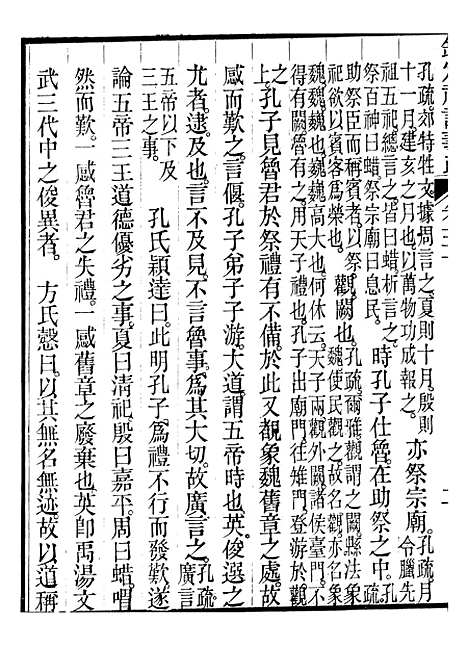 孔疏郊特牲文據周言之夏則十月殷則
十一月建亥之月也以萬物功成報之。亦祭宗廟。孔疏月令臘先
祖五祀總言之皆曰蜡析言之
祭百神曰蜡祭宗廟曰息民。時孔子仕魯在助祭之中。孔疏
助祭臣而稱賓者以祭
祀欲以賓客爲榮也。觀闕也。孔疏爾雅觀謂之闕縣法象
魏使民觀之故名觀亦名象
魏魏巍也巍巍高大也何休云天子兩觀外闕諸侯臺門不
得有闕魯有之用天子禮孔子出廟門往雉門登游於觀
上。孔子見魯君於祭禮有不備。於此又覩象魏舊章之處。故
感而歎之。言偃。孔子弟子子游。大道。謂五帝時也。英。俊選之
尤者。逮。及也。言不及見。不言魯事。爲其大切。故廣言之。孔疏廣言
五帝以下及
三王之事。孔氏穎達曰。此明孔子爲禮不行而發歎。遂
論五帝三王道德優劣之事。夏曰清祀。殷曰嘉平。周曰蜡。喟
然而歎。一感魯君之失禮。一感舊章之廢棄也。英卽禹湯文
武三代中之俊異者。方氏慤曰。以其無名無迹。故以道稱